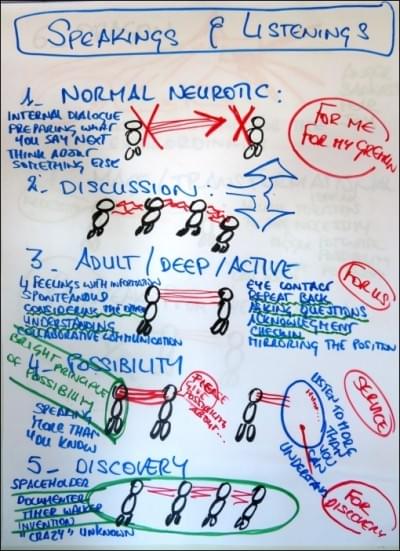 SPEAKINGS & LISTENINGS
1. NORMAL NEUROTIC:
INTERNAL DIALOGUE
PREPARING WHAT
YOU SAY NEXT
THINK ABOUT
SOMETHING ELSE
FOR ME
FOR MY GREMLIN
2. DISCUSSION:
3_ ADULT / DEEP / ACTIVE
4 FEELINGS WITH INFORTATION
SPONTEANOUS
CONSIDERING THE OTHER
UNDERSTANDING
COLLABORATIVE COMMUNICATION
EYE CONTACT
REPEAT BACK
ASKING QUESTIONS
ACKNOWLEGMENT
CHECK IN
MIRRORING THE POSITION
FOR US
4- POSSIBILITY
BRIGHT PRINCIPLE
OF POSSIBILITY
SPEAKING
MORE THAN
YOU KNOW
PLEASE
GIVE
POSSIBILITY
ABOUT...
LISTEN TO MORE
THAN YOU
CAN
UNDERSTAND
SERVICE
5_ DISCOVERY
SPACEHOLDER
DOCUMENTER
TIMER WALKER
INVENTION
"CRAZY" UNKNOWN
FOR
DISCOVERY